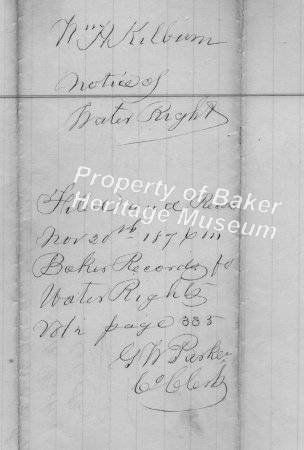 Wm H Kilburn
Notice of
Water Right
Property of Baker
Heritage Museum
Filed and
Nov 20th 187 in
Baker Records
Water Rights
page 335
G W Parker
Co Clerk